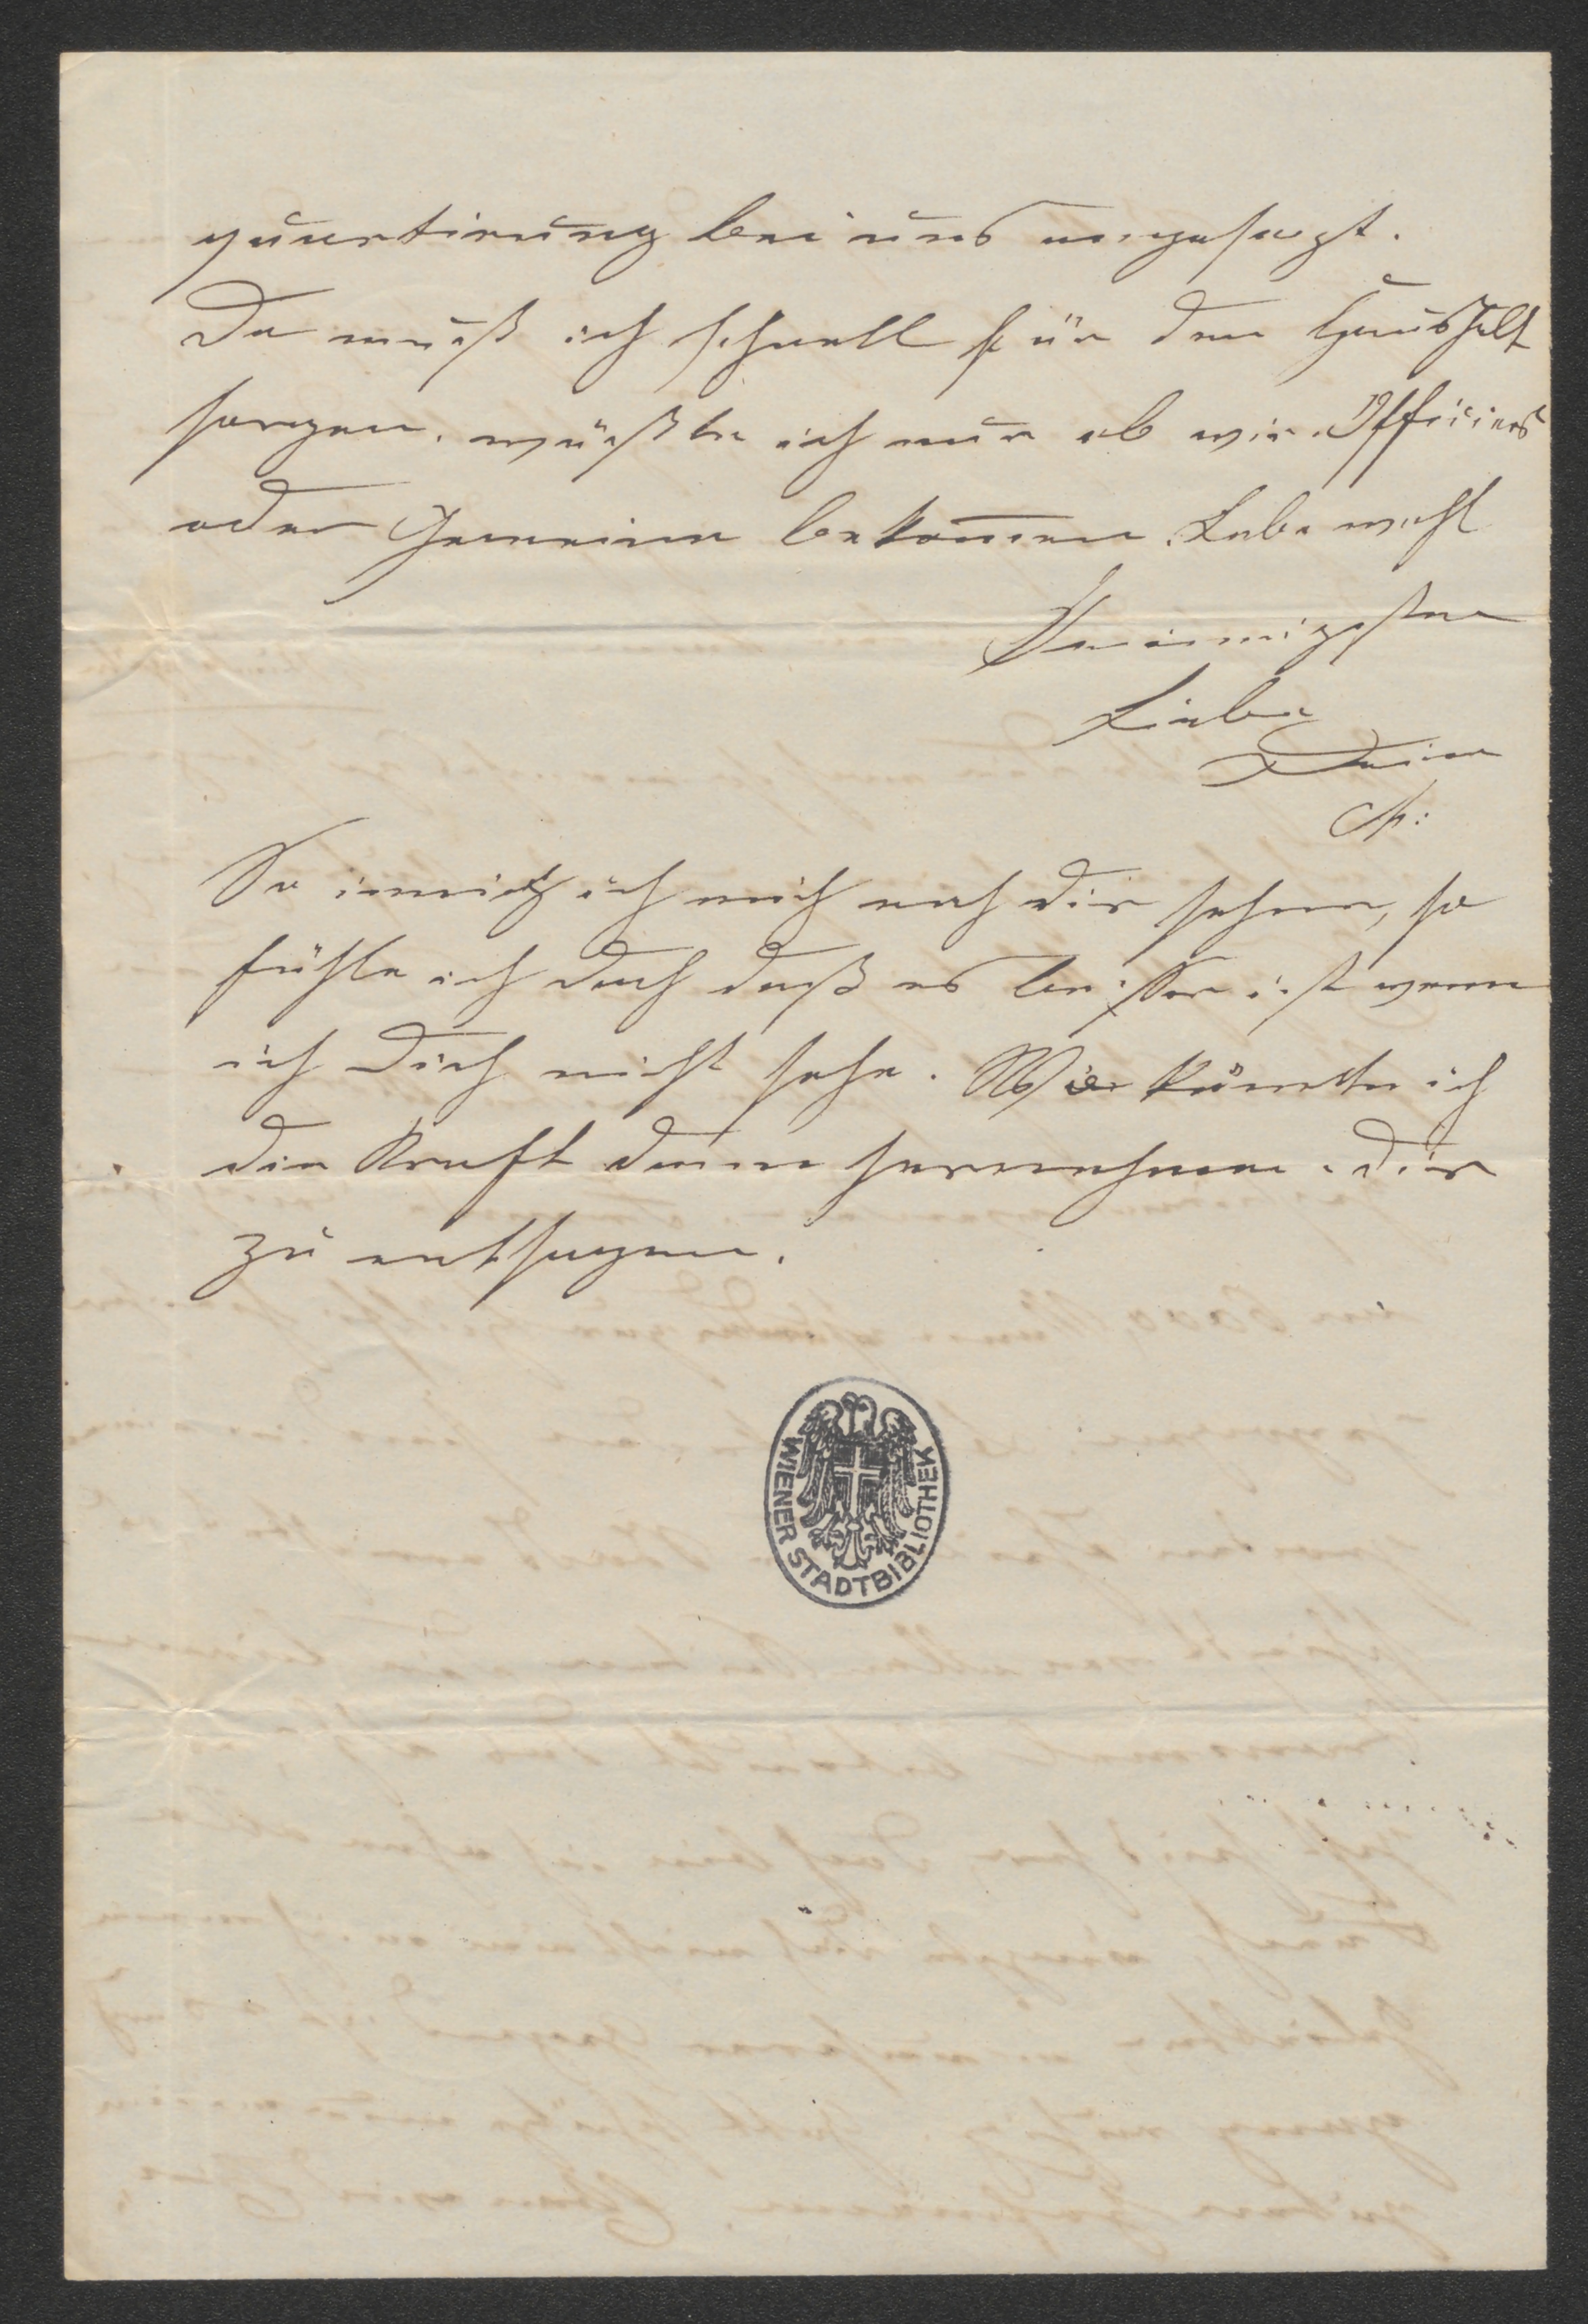 quartirung bei uns angesagt.
Da muß ich schnell für den Haushalt
sorgen. wüßte ich nur ob wir Officiers
oder Gemeine bekomen. Lebe wohl
Herinnigste
Liebe
Deine
So innig ich mich nach dir sehne, so
fühle ich doch daß es besser ist wenn
ich Dich nicht sehe. Wie könnte ich
die Kraft dann hernehmen. dir
zu entsagen.
WIENER STADTBIBLIOTHEK